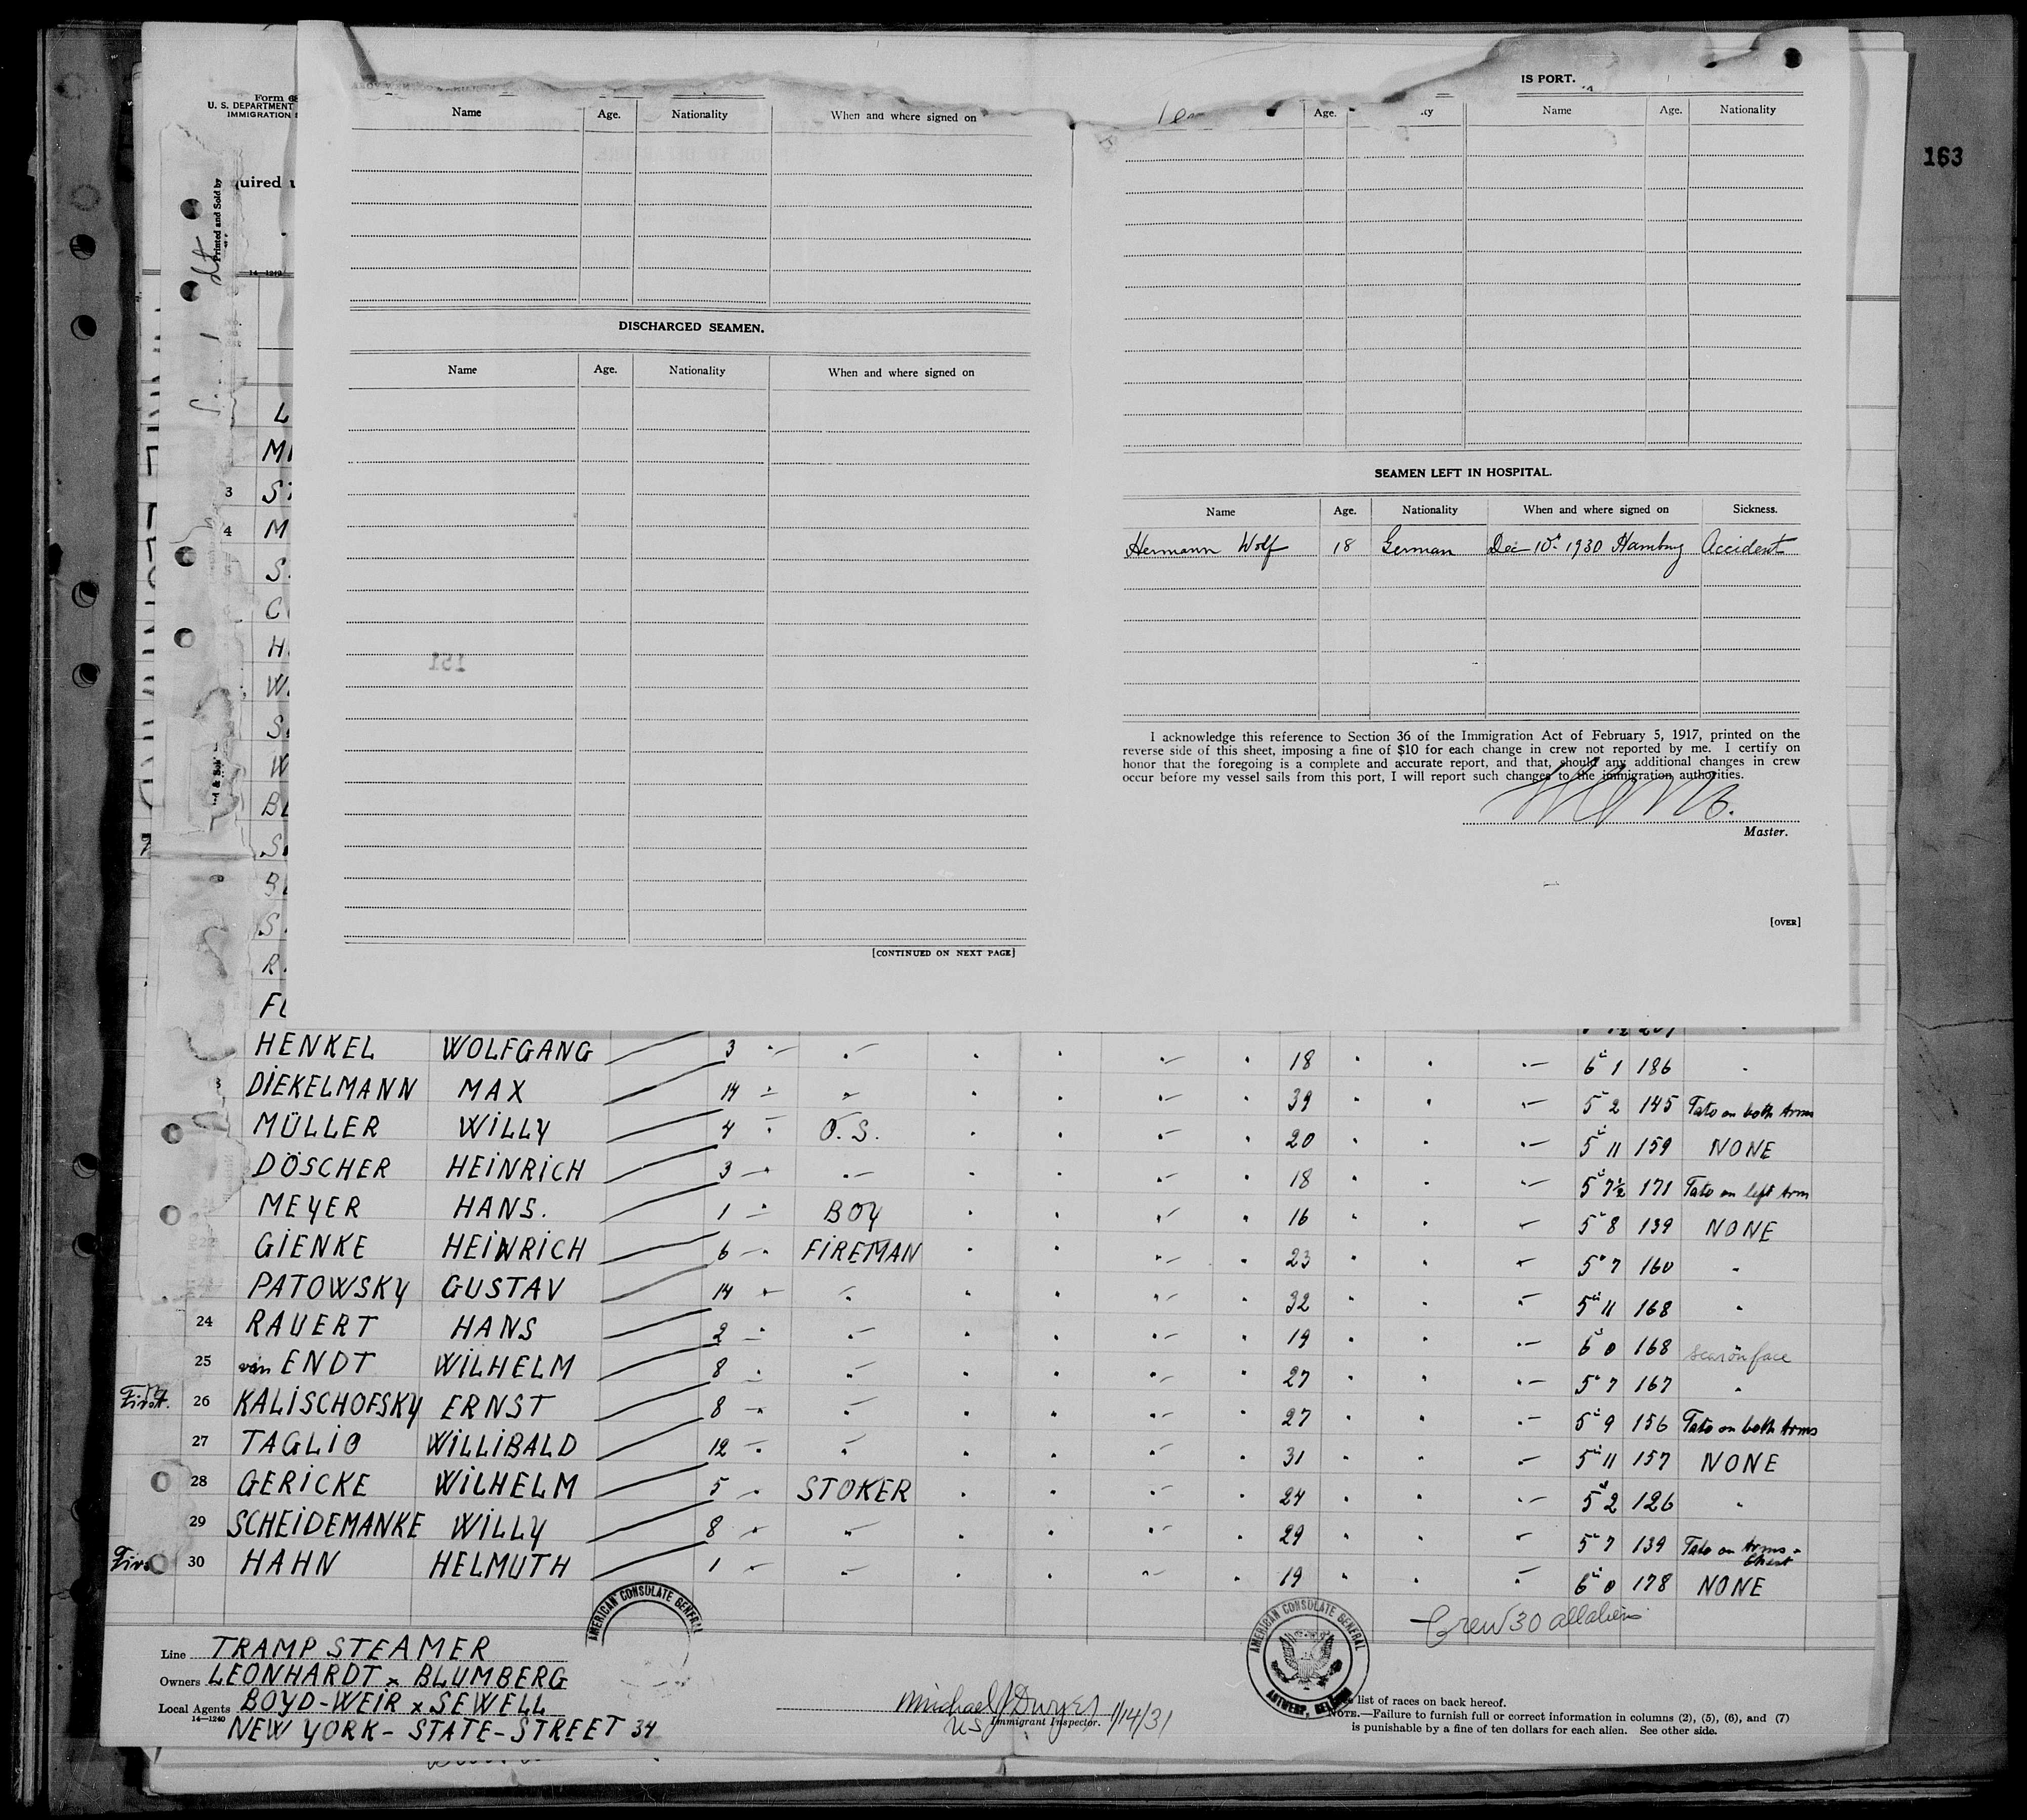 163
Form 68
U. S. DEPARTMENT
IMMIGRATION S
quired u
Printed and Sold by
14—1240
IS PORT.
Name Age. Nationality When and where signed on
Age. Name Age. Nationality
DISCHARGED SEAMEN.
Name Age. Nationality When and where signed on
151
[CONTINUED ON NEXT PAGE]
SEAMEN LEFT IN HOSPITAL.
Name Age. Nationality When and where signed on Sickness.
Hermann Wolf 18 German Dec 10. 1930 Hamburg Accident
I acknowledge this reference to Section 36 of the Immigration Act of February 5, 1917, printed on the
reverse side of this sheet, imposing a fine of $10 for each change in crew not reported by me. I certify on
honor that the foregoing is a complete and accurate report, and that, should any additional changes in crew
occur before my vessel sails from this port, I will report such changes to the immigration authorities.
Master.
[OVER]
L
MI
3 ST
4 M
S
C
H
W
S
W
BL
S
BL
S
R
FL
HENKEL WOLFGANG 3 18 6 1 186
DIEKELMANN MAX 14 39 5 2 145 Tato on both Arms
MÜLLER WILLY 4 O.S. 20 5 11 159 NONE
DÖSCHER HEINRICH 3 18 5 7½ 171 Tato on left Arm
MEYER HANS. 1 BOY 16 5 8 139 NONE
GIENKE HEINRICH 6 FIREMAN 23 5 7 160 "
PATOWSKY GUSTAV 14 32 5 11 168 "
24 RAUERT HANS 2 19 6 0 168 scar on face
25 van ENDT WILHELM 8 27 5 7 167 "
First. 26 KALISCHOFSKY ERNST 8 27 5 9 156 Tato on both Arms
27 TAGLIO WILLIBALD 12 31 5 11 157 NONE
28 GERICKE WILHELM 5 STOKER 24 5 2 126 "
29 SCHEIDEMANKE WILLY 8 29 5 7 139 Tato on Arms - Chest
Firs 30 HAHN HELMUTH 1 19 6 0 178 NONE
Crew 30 all aliens
AMERICAN CONSULATE GENERAL
AMERICAN CONSULATE GENERAL
ANTWERP, BELGIUM
Line TRAMP STEAMER
Owners LEONHARDT x BLUMBERG
Local Agents BOYD-WEIR x SEWELL
14—1240
NEW YORK - STATE-STREET 34
Michael J Dwyer 1/14/31
US Immigrant Inspector.
list of races on back hereof.
NOTE.—Failure to furnish full or correct information in columns (2), (5), (6), and (7)
is punishable by a fine of ten dollars for each alien. See other side.